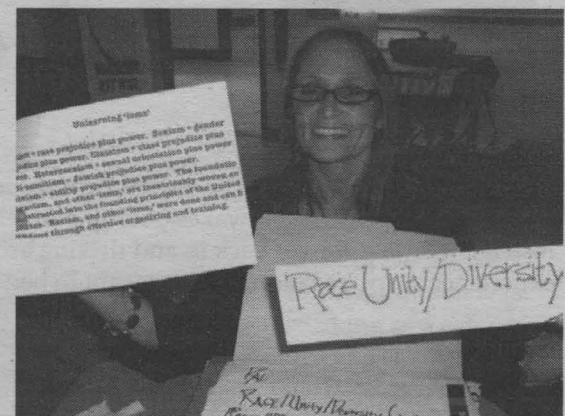 Unlearning 'isms'
= race prejudice plus power. Sexism = gender
plus power. Classism = class prejudice plus
Heterosexism = sexual orientation plus power
= Jewish prejudice plus power.
= ability prejudice plus power. The foundation
and other 'isms,' are inextricably woven
into the founding principles of the United
Racism, and other 'isms,' were done and can b
through effective organizing and training.
Race Unity/Diversity
Race/Unity/Diversity